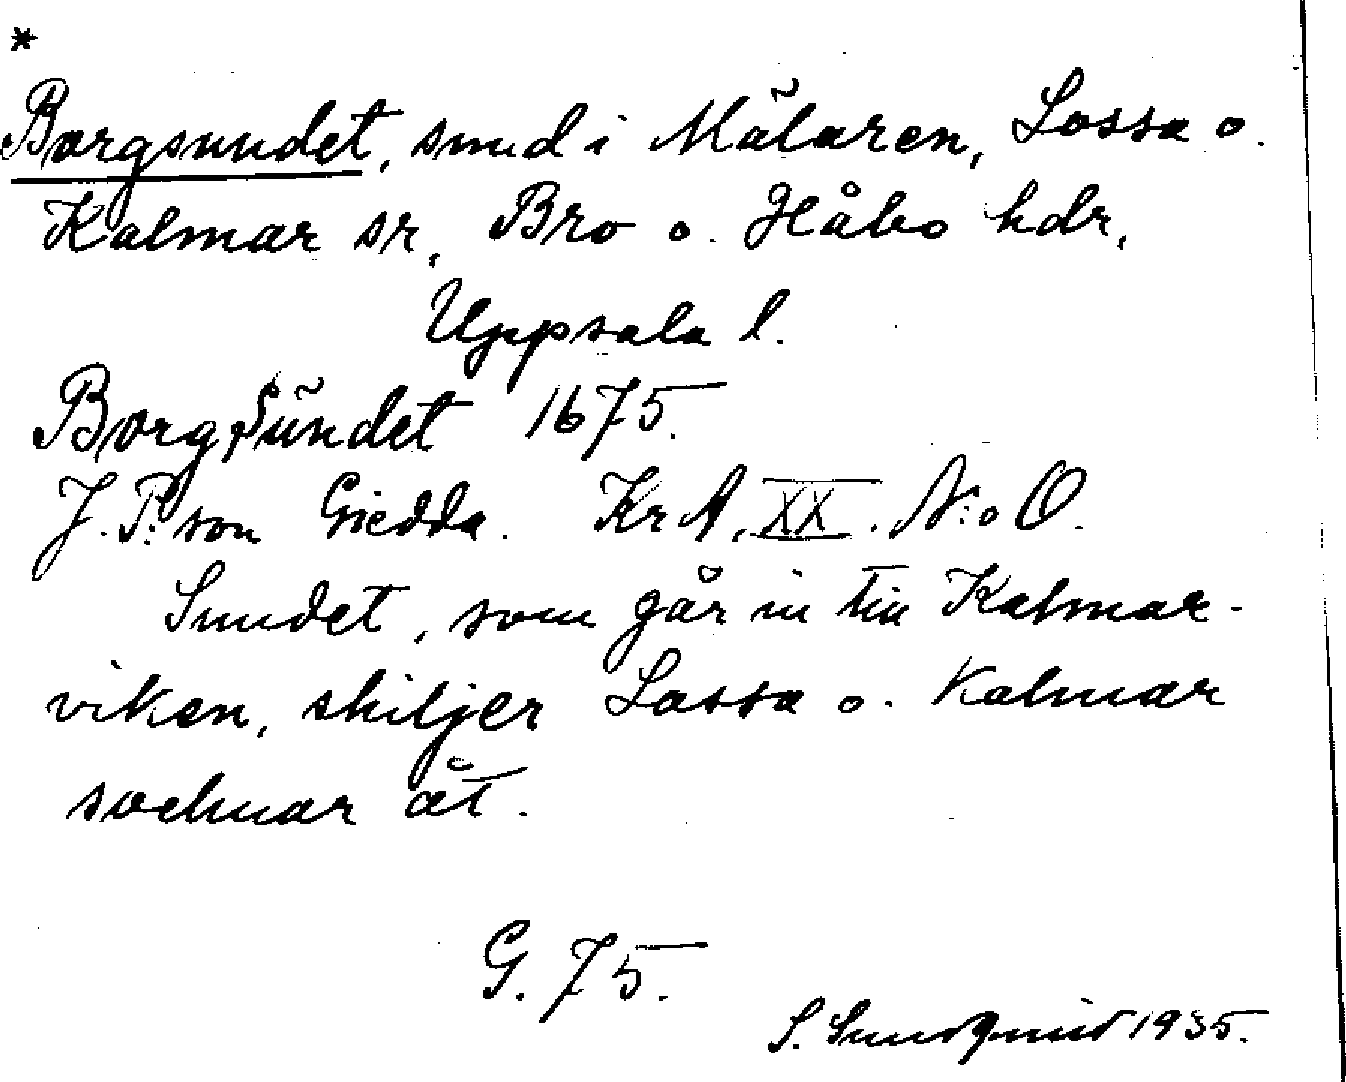 *
Borgsundet, sund i Mälaren, Lossa o.
Kalmar sr, Bro o. Håbo hdr,
Uppsala l.
Borgsundet 1675.
J. P:son Giedda. KrA, XX. N:o O.
Sundet, som går in till Kalmar-
viken, skiljer Lossa o. Kalmar
socknar åt.
G. 75.
S. Sundqvist 1935.